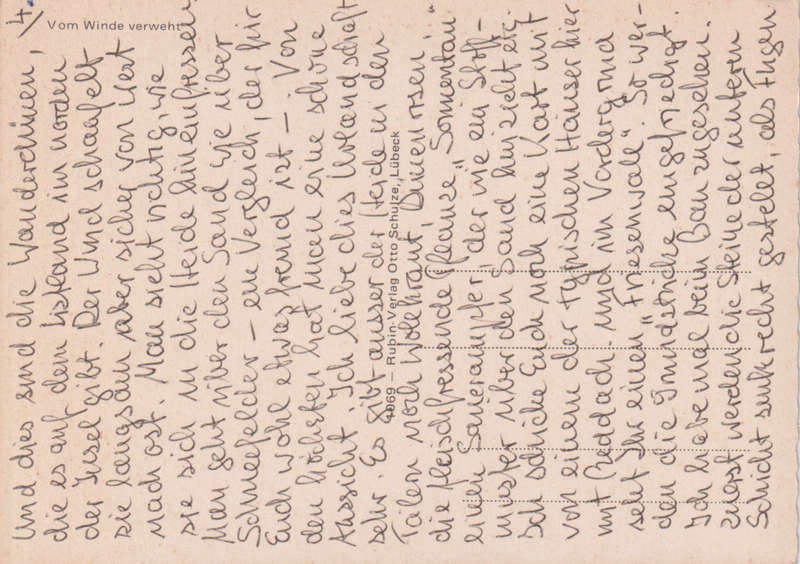 Vom Winde verweht
4969 Rubin-Verlag Otto Schulze, Lübeck
4.
Und dies sind die Wanderdünen,
die es auf dem Listland im norden
der Insel gibt. Der Wind schaufelt
sie langsam aber sicher von West
nach Ost. Man sieht richtig, wie
sie sich in die Heide hineinfressen.
Man geht über den Sand wie über
Schneefelder – ein Vergleich, der für
Euch wohl etwas fremd ist –. Von
den höchsten hat man eine schöne
Aussicht. Ich liebe dies Listlandschaft
sehr. Es gibt ausser der Heide in den
Tälern noch Wollkraut, Dünenrosen,
die fleischfressende Pflanze "Sonnentau"
einen Sauerampfer, der wie ein Stoff-
muster über den Sand hinzieht etc.
Ich schicke Euch noch eine Kart mit
von einem der typischen Häuser hier
mit Reddach. und im Vordergrund
seht Ihr einen "Friesenwall". So wer-
den die Grundstücke eingefriedigt.
Ich habe mal beim Bau zugesehen.
zuerst werden die Steine der unteren
Schicht senkrecht gestellt, als Fugen